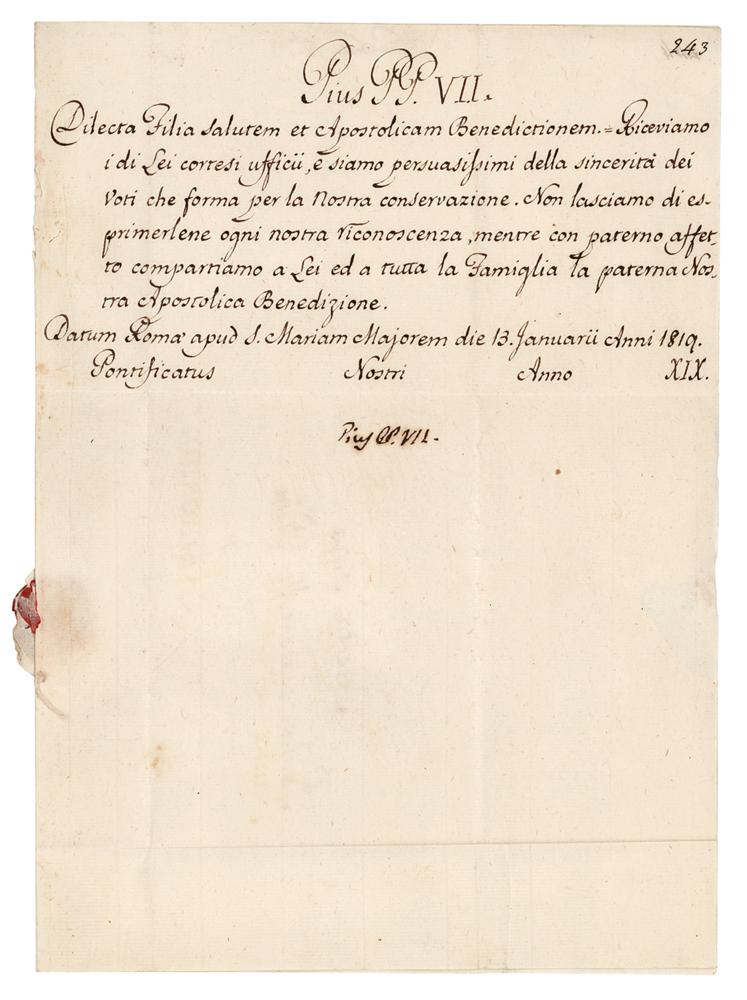 243
Pius PP. VII.
Dilecta Filia salutem et Apostolicam Benedictionem. = Riceviamo
i di Lei cortesi ufficii, e siamo persuasissimi della sincerità dei
voti che forma per la Nostra conservazione. Non lasciamo di es-
primerlene ogni nostra riconoscenza, mentre con paterno affet-
to compartiamo a Lei ed a tutta la Famiglia la paterna Nos-
tra Apostolica Benedizione.
Datum Romæ apud S. Mariam Majorem die 13. Januarii Anni 1819.
Pontificatus Nostri Anno XIX.
Pius PP. VII.